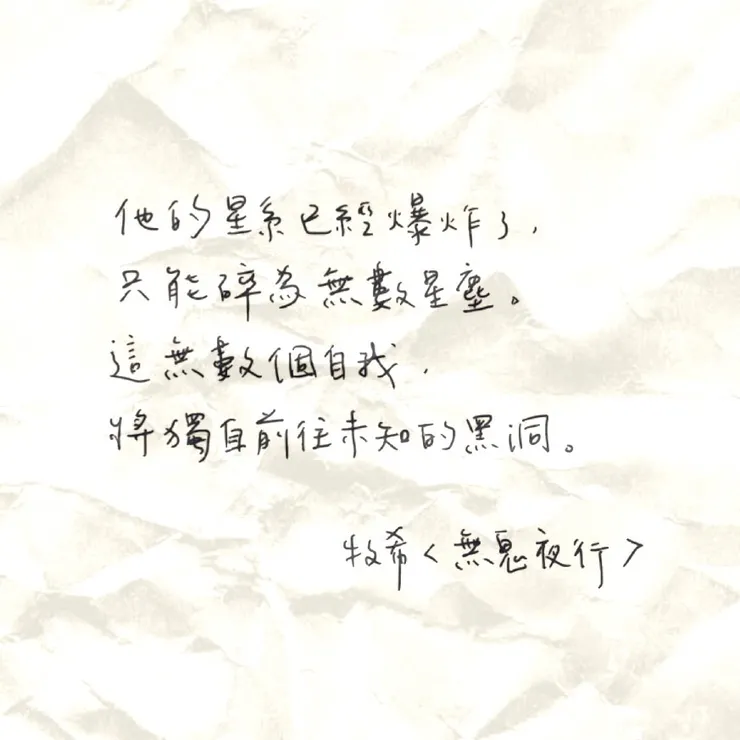 他的星系已經爆炸了，
只能碎為無數星塵。
這無數個自我，
將獨自前往未知的黑洞。
牧希〈無鬼夜行〉